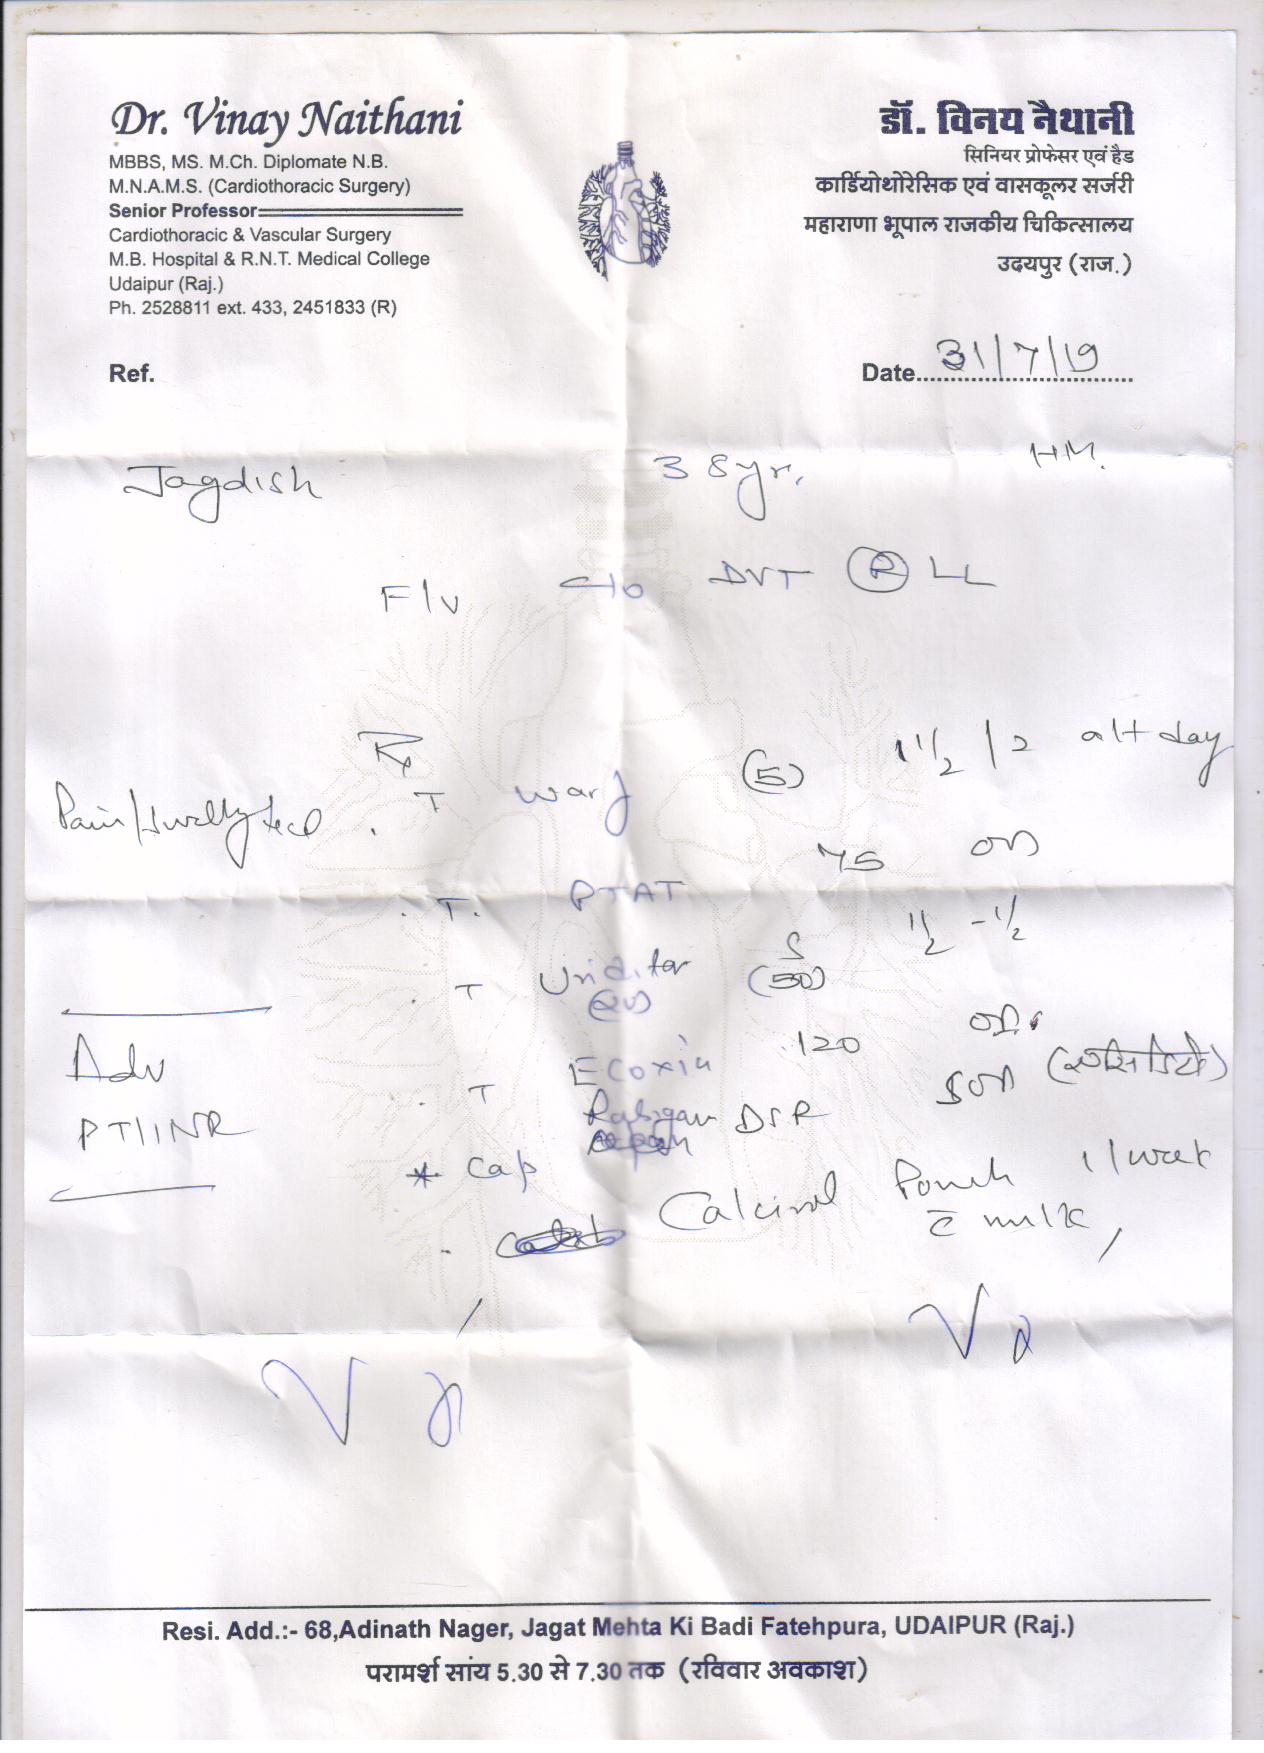 Dr. Vinay Naithani
MBBS, MS. M.Ch. Diplomate N.B.
M.N.A.M.S. (Cardiothoracic Surgery)
Senior Professor
Cardiothoracic & Vascular Surgery
M.B. Hospital & R.N.T. Medical College
Udaipur (Raj.)
Ph. 2528811 ext. 433, 2451833 (R)
डॉ. विनय नैथानी
सिनियर प्रोफेसर एवं हैड
कार्डियोथोरेसिक एवं वासकूलर सर्जरी
महाराणा भूपाल राजकीय चिकित्सालय
उदयपुर (राज.)
Ref.
Date 31/7/19
Jagdish 38yr. HM.
F/V c/o DVT (R) LL
Rx
T warf (5) 1 1/2 / 2 alt day
Pain/
T. PTAT 75 OD
T (50) 1/2 - 1/2
T Ecoxia 120 OD
Adv
PT/INR
* Cap DSR
Calcirol 1/week
c̄ milk
Resi. Add.:- 68,Adinath Nager, Jagat Mehta Ki Badi Fatehpura, UDAIPUR (Raj.)
परामर्श सांय 5.30 से 7.30 तक (रविवार अवकाश)